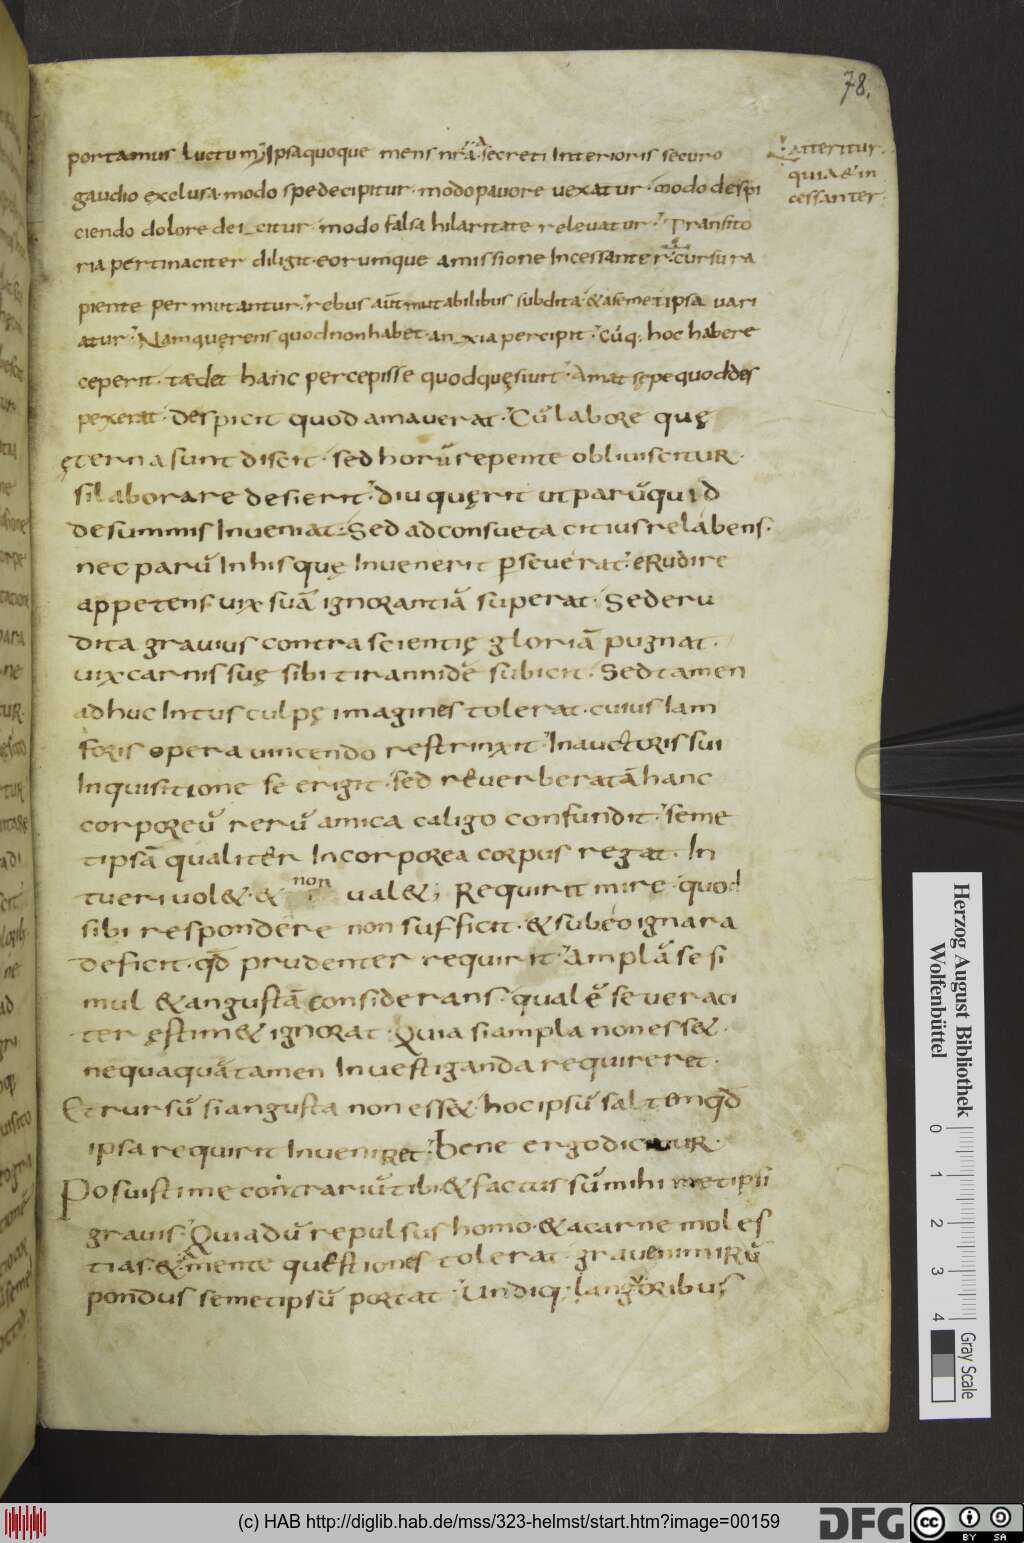 78.
portamus luctum; Ipsa quoque mens nr̄a secreti Interioris securo
gaudio exclusa. modo spe decipitur. modo pavore vexatur. modo despi
ciendo dolore deicitur. modo falsa hilaritate relevatur. Transito
ria pertinaciter diligit. eorumque amissione Incessanter cursu ra
piente permutantur. rebus aūt mutabilibus subdita. & a semetipsa vari
atur. Nam quęrens quod non habet. anxia percipit. Cū q; hoc habere
ceperit. tædet hanc percepisse quod quęsivit. Amat sępe quod des
pexerat. despicit quod amaverat. Cū labore quę
ęterna sunt discit. sed horū repente obliviscitur.
si laborare desierit. diu quęrit ut parū quid
de summis Inveniat. Sed ad consueta citius relabens.
nec parū In his quę Invenerit pseverat. erudire
appetens vix suā ignorantiā superat. Sed eru
dita gravius contra scientię gloriā pugnat.
vix carnis suę sibi tirannidē subicit. Sed tamen
adhuc Intus culpę imagines tolerat. cuius Iam
foris opera vincendo restrinxit. In auctoris sui
Inquisitione se erigit. sed reverberatā hanc
corporeū rerū amica caligo confundit. seme
tipsā qualiter Incorporea corpus regat. In
tueri vol&. & non val&; Requirit mire quod
sibi respondere non sufficit. & sub eo ignara
deficit. qd̄ prudenter requirit. Amplā se si
mul & angustā considerans. qualē se veraci
ter ęstim& ignorat. Quia si ampla non ess&.
nequaquā tamen Investiganda requireret.
Et rursū si angusta non ess&. hoc ipsū saltem qd̄
ipsa requirit Inveniret. Bene ergo dicitur.
Posuisti me contrariū tibi. & factus sū mihimetipsi
gravis. Quia dū repulsus homo. & a carne moles
tias. & a mente questiones tolerat. grave nimirū
pondus semetipsū portat. Undiq. langoribus
atteritur.
quia & in
cessanter
Herzog August Bibliothek
Wolfenbüttel
0 1 2 3 4
Gray Scale
(c) HAB http://diglib.hab.de/mss/323-helmst/start.htm?image=00159
DFG
cc BY SA